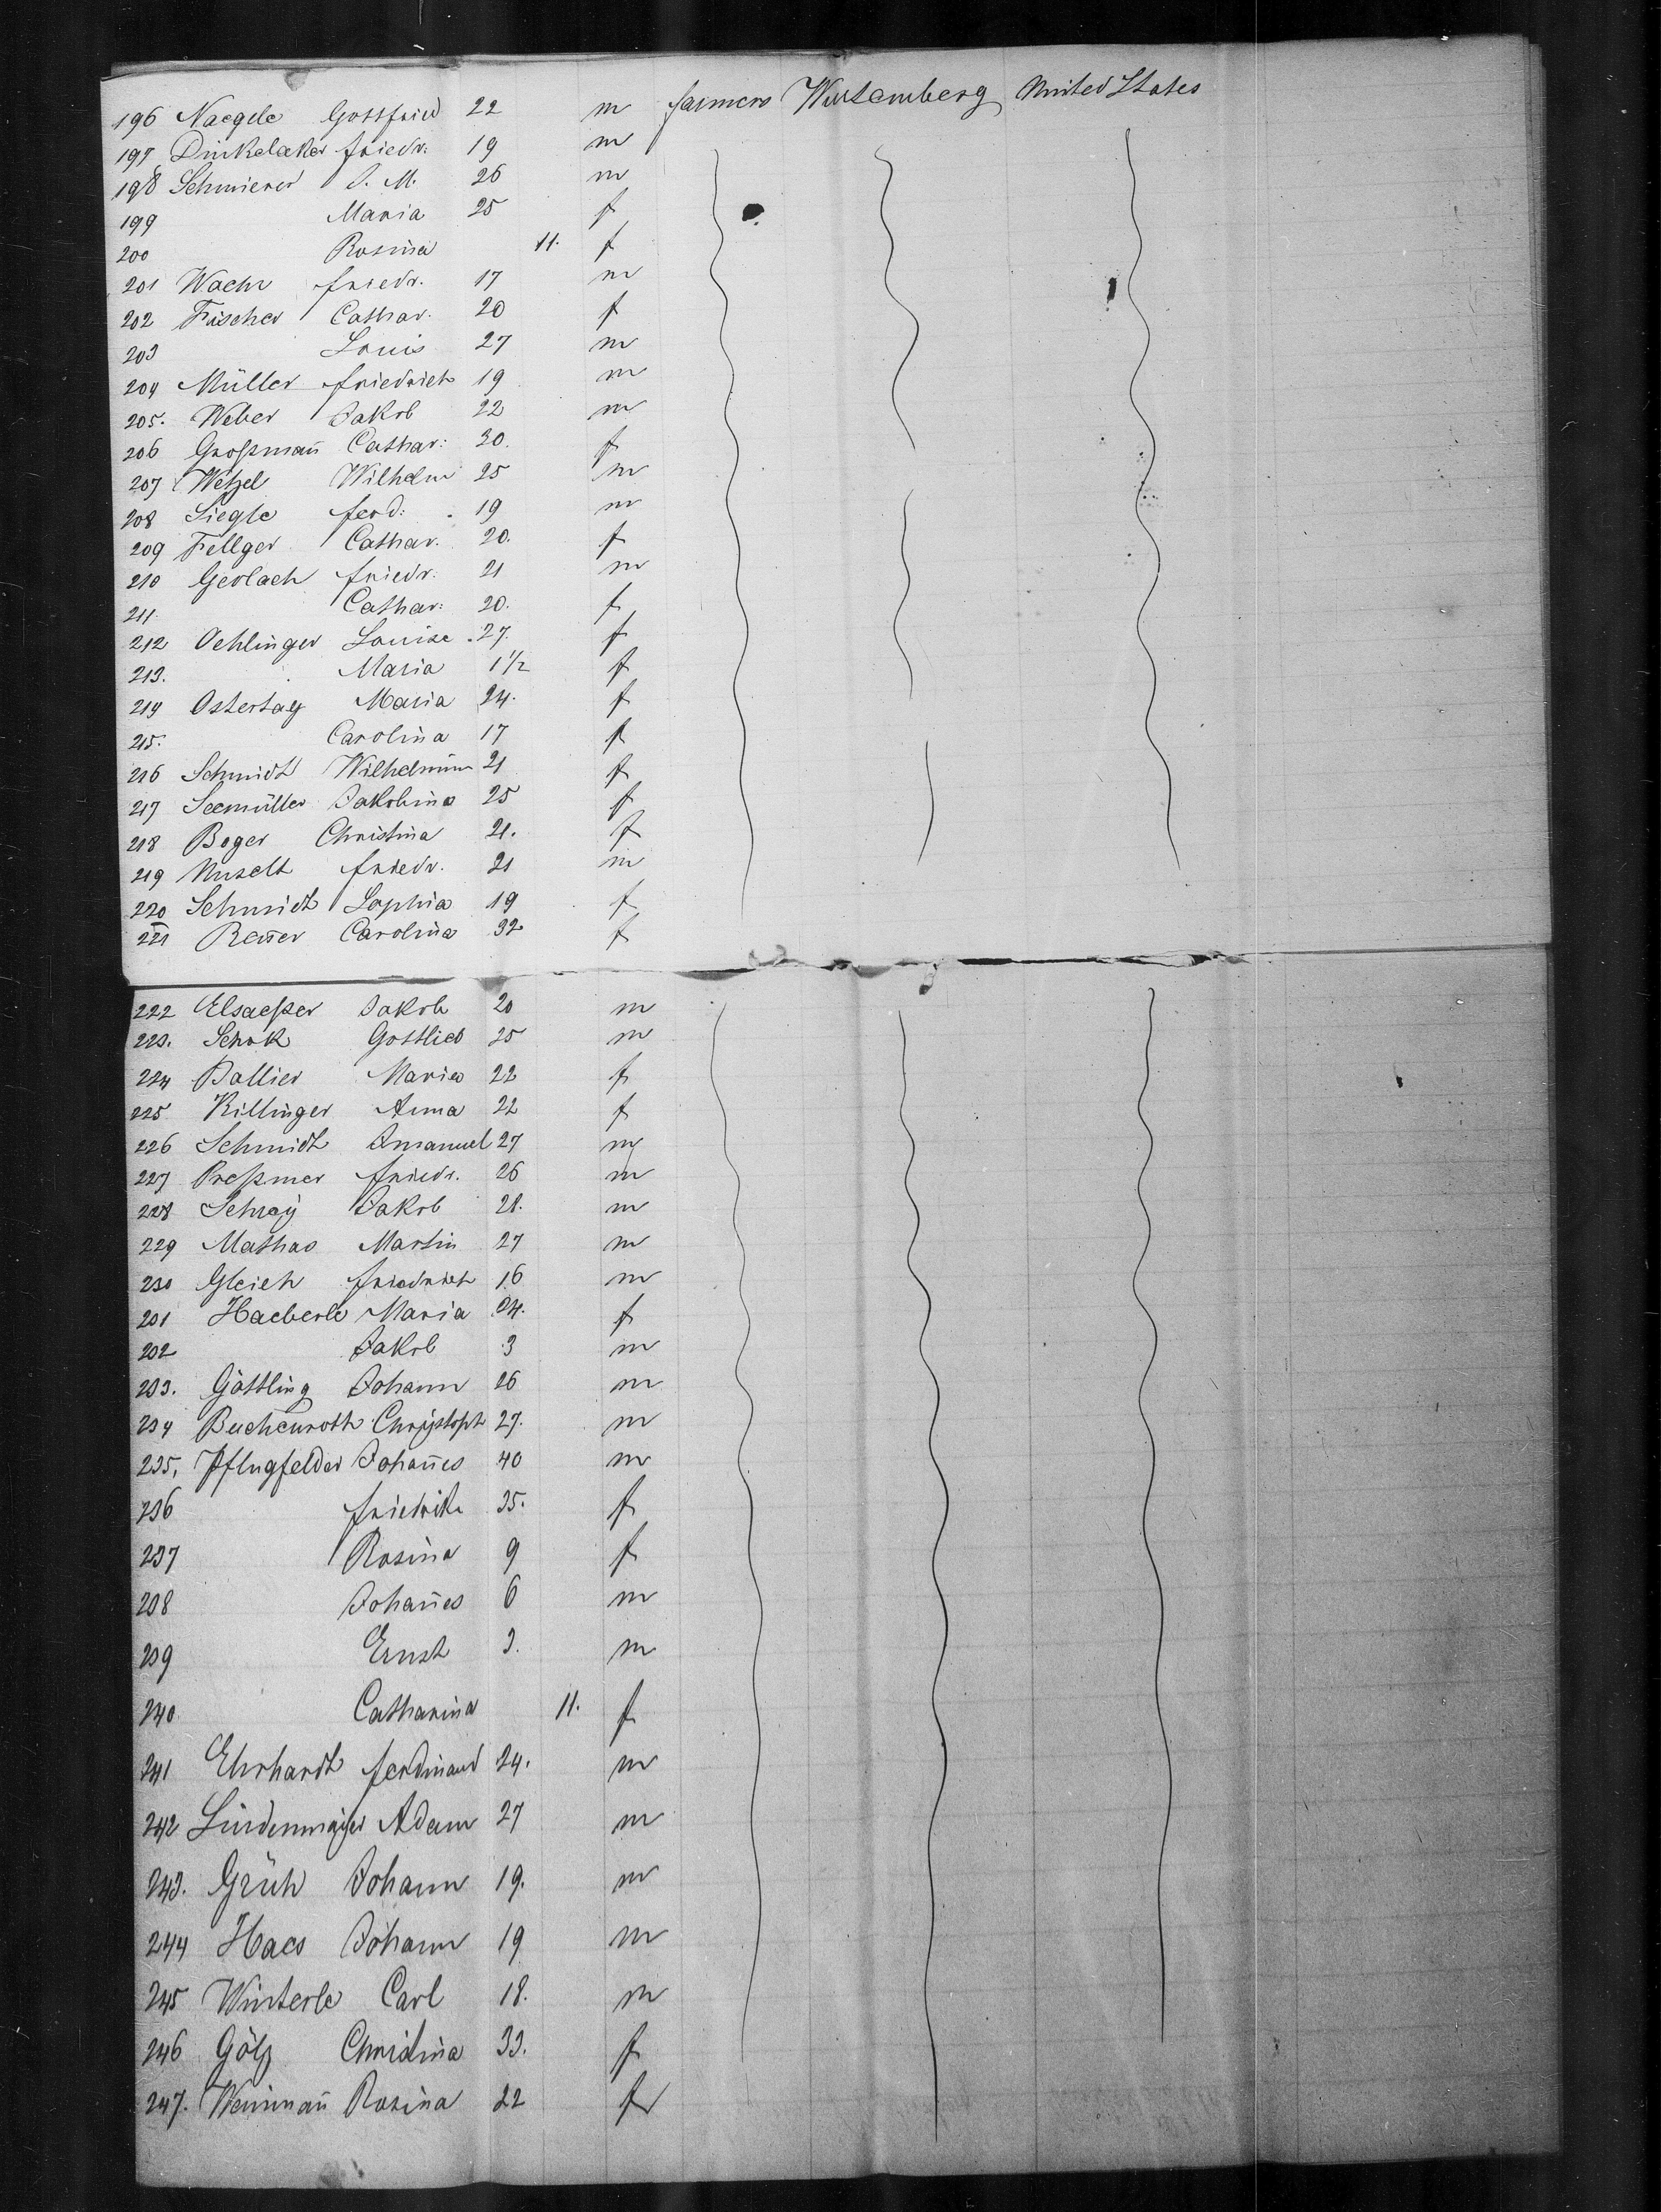 196 Naegele Gottfried 22 m farmers Wurtemberg United States
197 Dinkelaker Friedr: 19 m
198 Schmierer J. M. 26 m
199 Maria 25 f
200 Rosina 11. f
201 Friedr. 17 m
202 Fischer Cathar. 20 f
203 Louis 27 m
204 Müller Friedrich 19 m
205. Weber Jakob 22 m
206 Großmañ Cathar: f
207 Wetzel Wilhelm 25 m
208 Siegle Ferd: 19 m
209 Fellger Cathar. 20. f
210 Gerlach Friedr. 21 m
211. Cathar: 20. f
212 Oehlinger Louise 27. f
213. Maria 1 1/2 f
214 Ostertag Maria 24. f
215. Carolina 17 f
216 Schmidt 21 f
217 Seemüller Jakobina 25 f
218 Boger Christina 21. f
219 Friedr. 21 m
220 Schmidt Sophia 19 f
221 Reñer Carolina 32 f
222 Elsaeßer Jakob 20 m
223. Schok Gottlieb 25 m
224 Ballier Maria 22 f
225 Killinger Anna 22 f
226 Schmidt Imanuel 27 m
227 Preßmer Friedr. 26 m
228 Jakob m
229 Martin 27 m
230 Gleich Friedrich 16 m
231 Haeberle Maria f
232 Jakob 3 m
233. Göttling Johann 26 m
234 Buchenroth Christoph 27. m
235. Pflugfelder Johañes 40 m
236 35. f
237 Rosina 9 f
238 Johañes 6 m
239 Ernst 3. m
240 Catharina 11. f
241 Ehrhardt Ferdinand 24. m
242 Lindenmajer Adam 27 m
243. Johann 19. m
244 Haes Johann 19 m
245 Winterle Carl 18. m
246 Götz Christina 33. f
247. Weinmañ Rosina 22 f